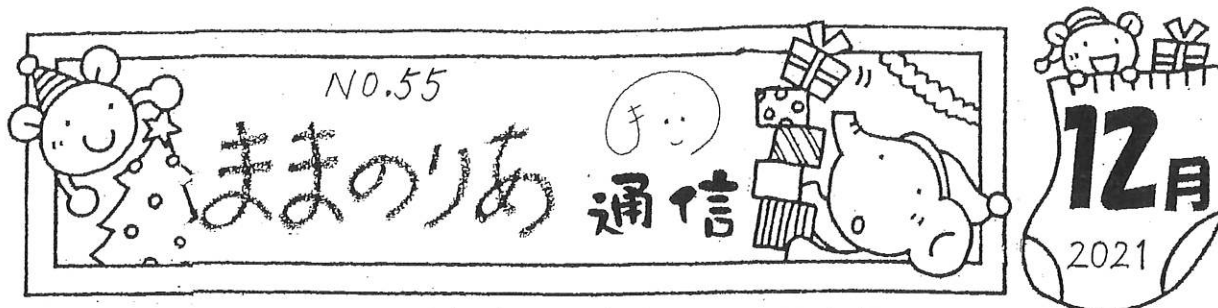 NO.55
ままのりあ 通信
ま
12月
2021